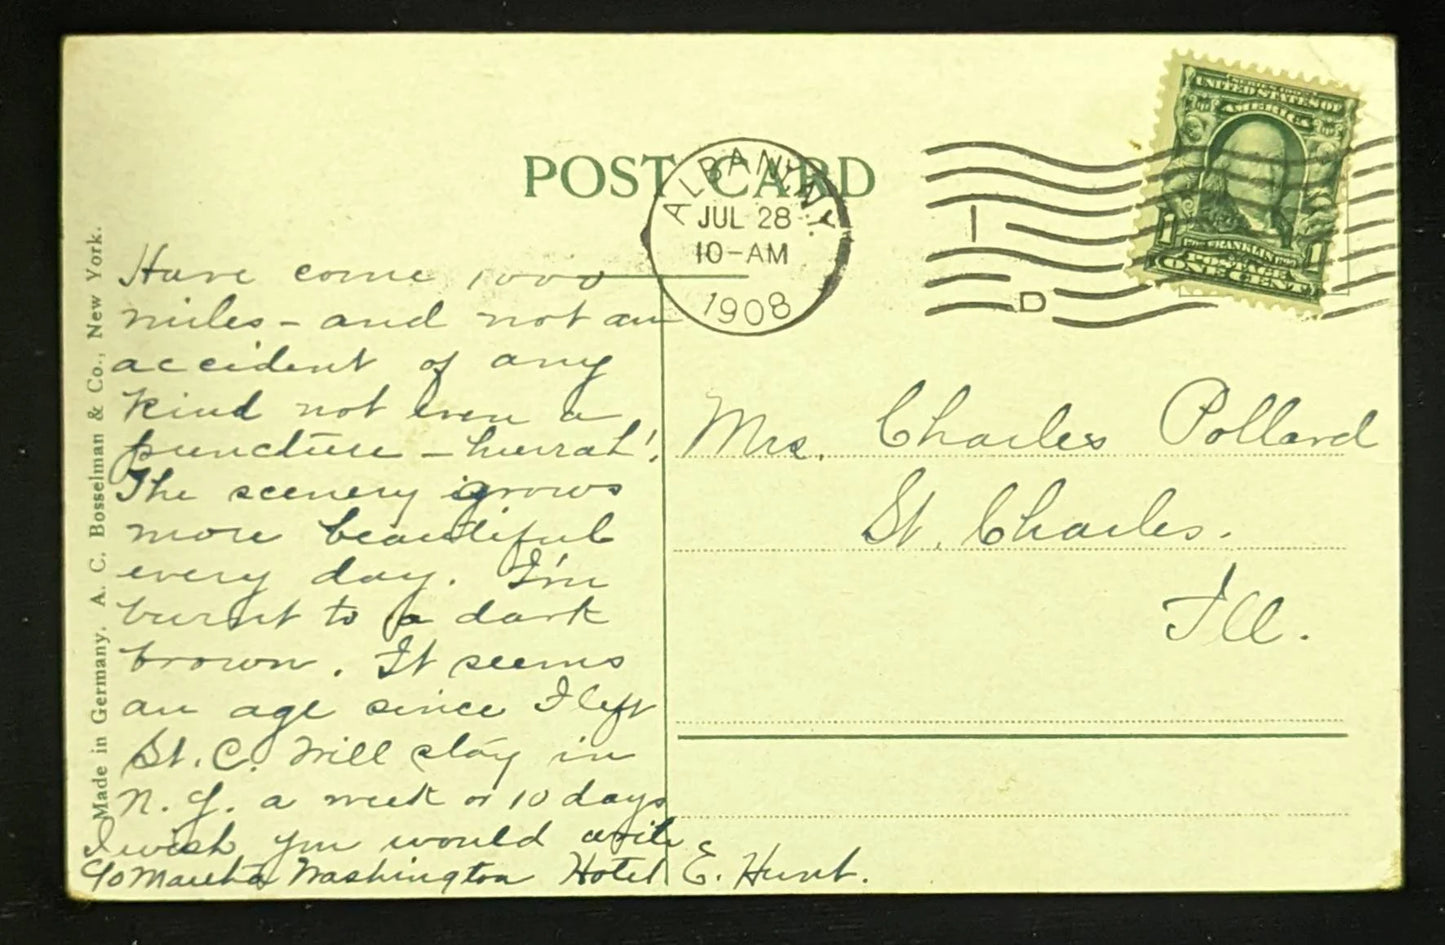 POST CARD
ALBANY, N.Y.
JUL 28
10-AM
1908
1
D
SERIES 1902
UNITED STATES OF
AMERICA
1 FRANKLIN 1
POSTAGE
ONE CENT
Made in Germany. A. C. Bosselman & Co., New York.
Have come 1000
miles - and not an
accident of any
kind not even a
puncture - hurrah!
The scenery grows
more beautiful
every day. I'm
burnt to a dark
brown. It seems
an age since I left
St. C. Will stay in
N. Y. a week or 10 days
I wish you would write
c/o Martha Washington Hotel E. Hunt.
Mrs. Charles Pollard
St. Charles.
Ill.